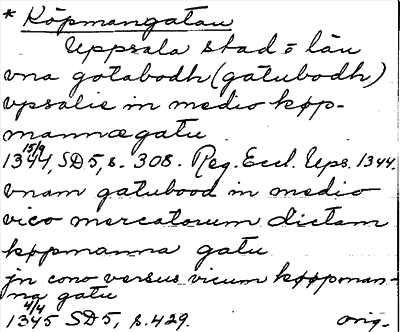 * Köpmangatan
Uppsala stad o län
vna gotabodh (gatubodh)
vpsalie in medio køp-
mannægatu
1344 15/9, SD 5, s. 308. Reg. Eccl. Ups. 1344.
vnam gatubood in medio
vico mercatorum dictam
køpmanna gatu
jn cono versus vicum køpman-
na gatu
1345 4/4 SD 5, s. 429. orig.